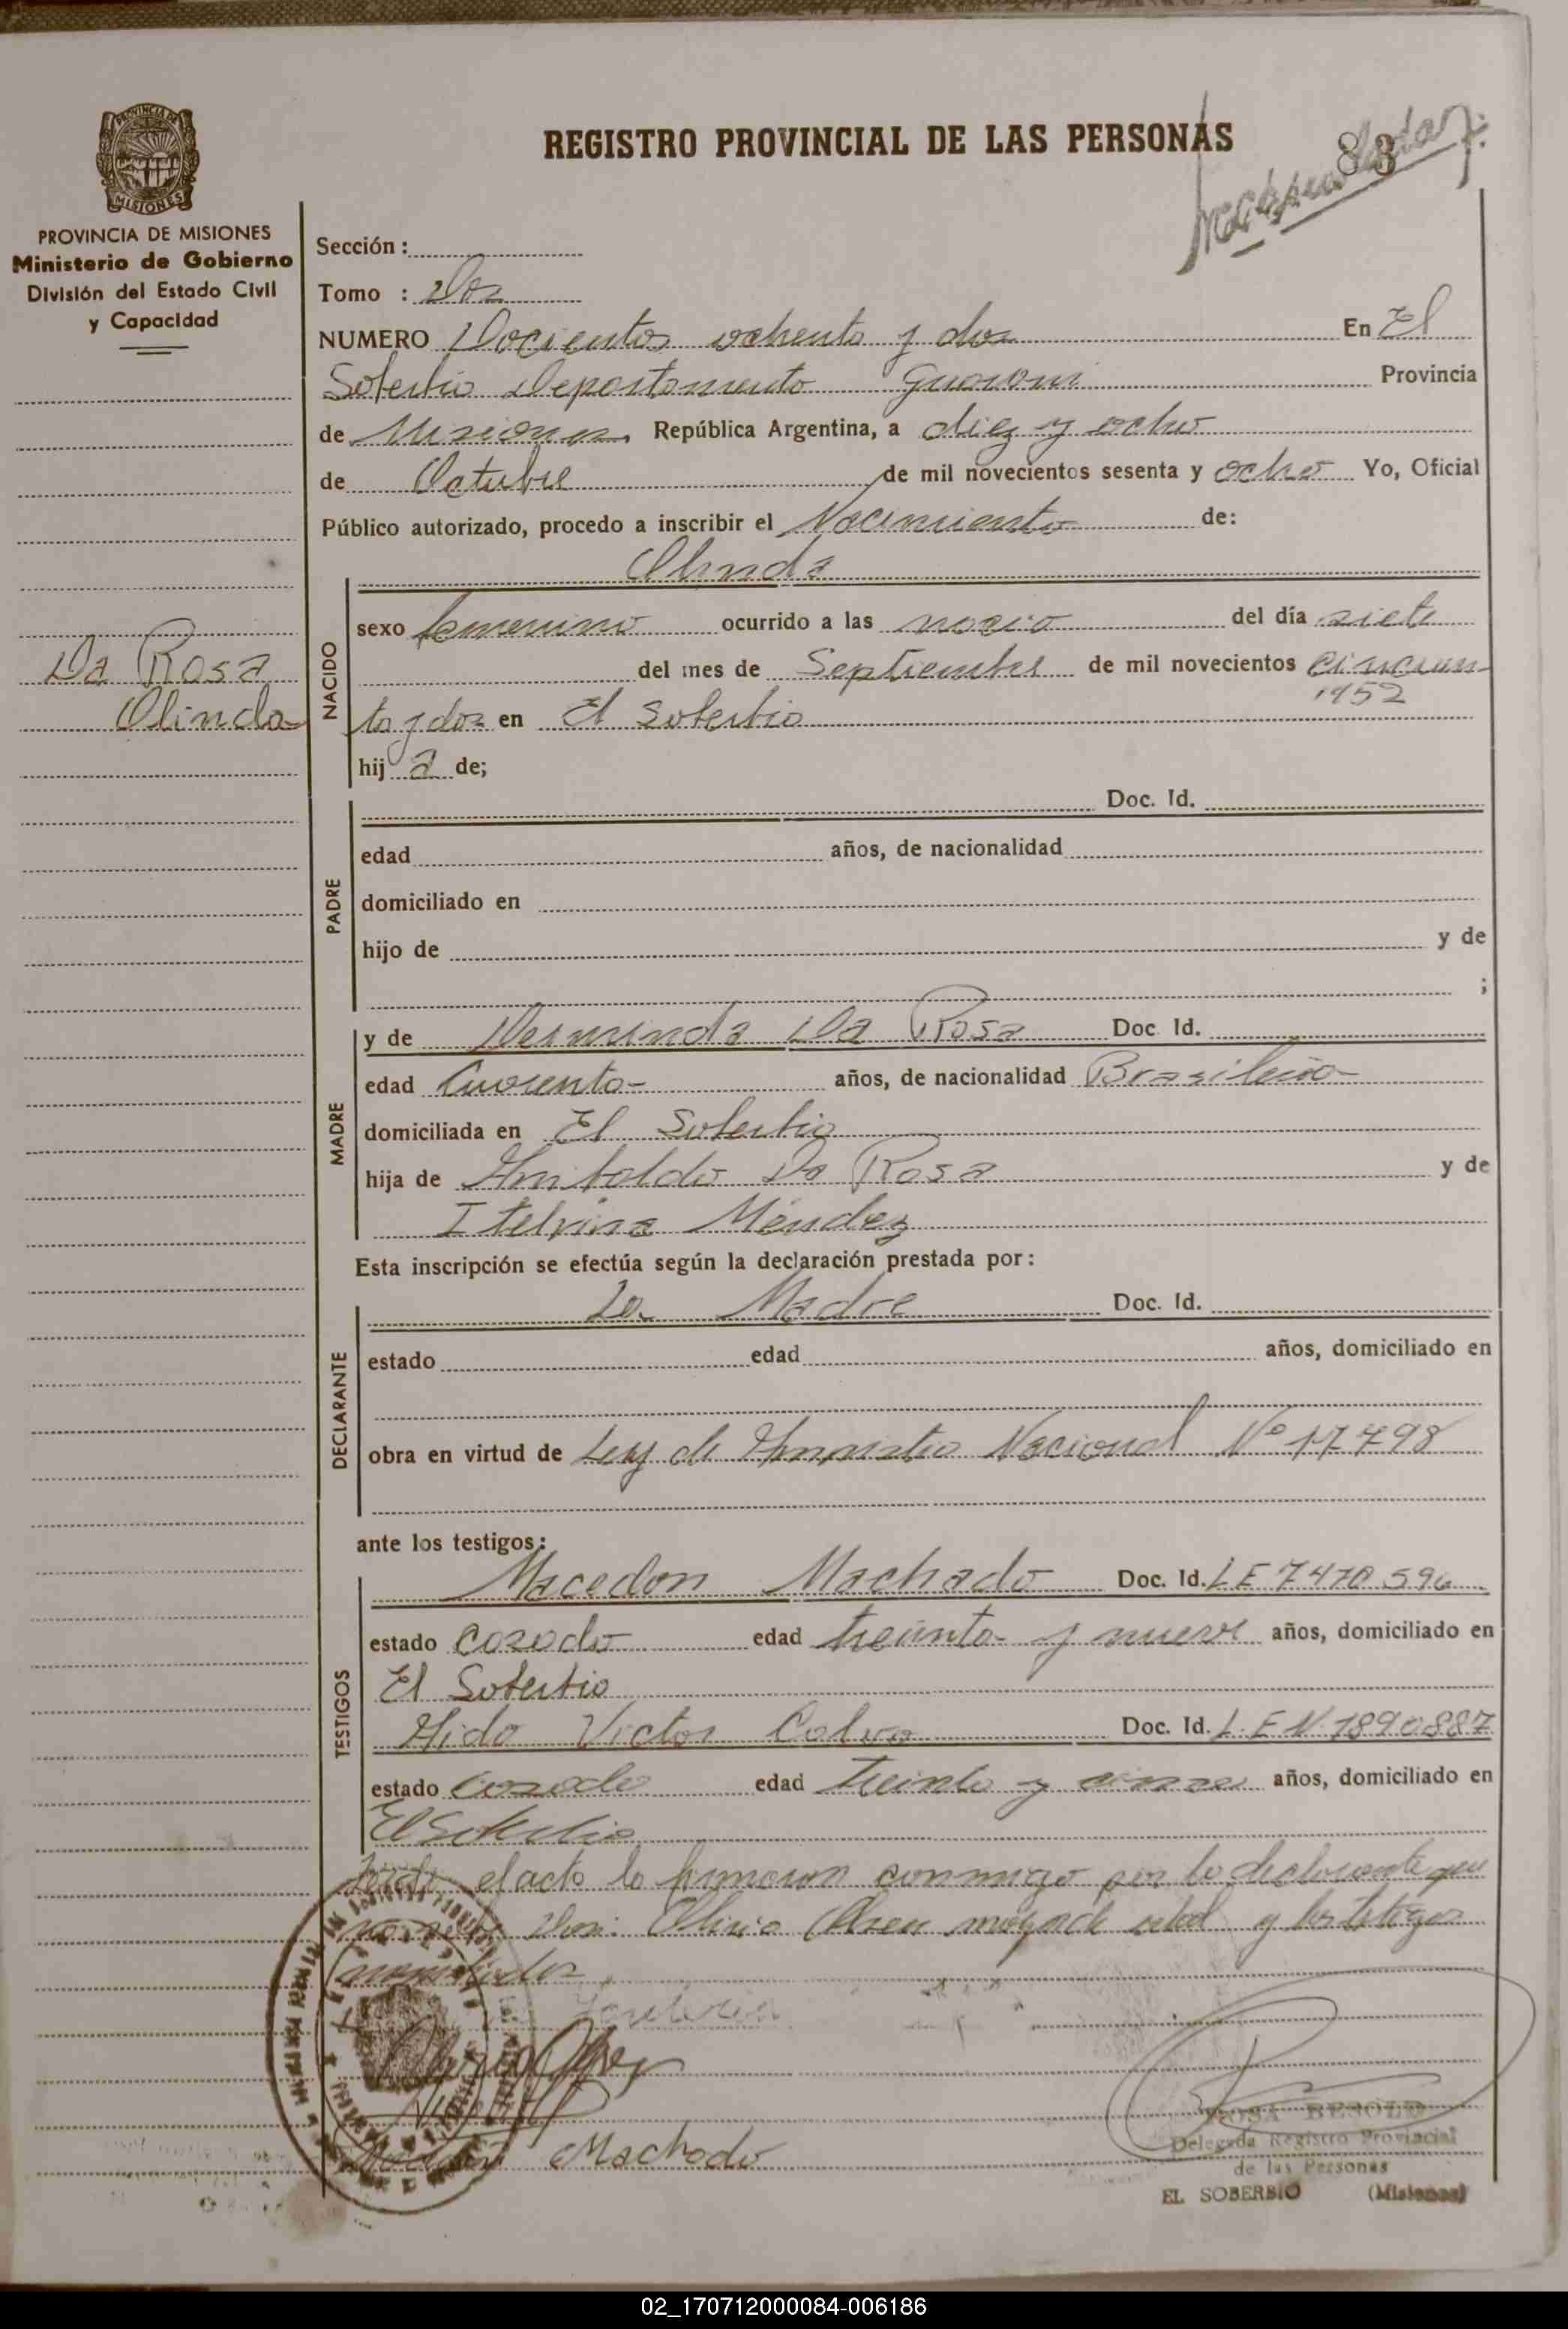 REGISTRO PROVINCIAL DE LAS PERSONAS
83
PROVINCIA DE MISIONES
Ministerio de Gobierno
División del Estado Civil
y Capacidad
Sección :
Tomo : Dos
NUMERO Docientos ochenta y dos En El
Soberbio Departamento Guarani Provincia
de Misiones República Argentina, a diez y ocho
de Octubre de mil novecientos sesenta y ocho Yo, Oficial
Público autorizado, procedo a inscribir el Nacimiento de:
Olinda
Da Rosa
Olinda
NACIDO
sexo femenino ocurrido a las del día siete
del mes de Septiembre de mil novecientos cincuen-
1952
ta y dos en El Soberbio
hij a de;
PADRE
Doc. Id.
edad años, de nacionalidad
domiciliado en
hijo de y de
;
MADRE
y de Derminda Da Rosa Doc Id.
edad Cuarenta- años, de nacionalidad Brasileña-
domiciliada en El Soberbio
hija de Da Rosa y de
Itelvina Méndez
Esta inscripción se efectúa según la declaración prestada por:
DECLARANTE
La Madre Doc. Id.
estado edad años, domiciliado en
obra en virtud de Ley de Amnistia Nacional Nº 17498
ante los testigos:
TESTIGOS
Macedon Machado Doc. Id. LE 7470596
estado casado edad treinta y nueve años, domiciliado en
El Soberbio
Victor Doc. Id. L.E.N. 7890887
estado casado edad treinta y años, domiciliado en
El Soberbio
Leido el acto lo firmaron conmigo por la declarante que
no Don: mayor de edad y los testigos
Machado
ROSA BESOLD
Delegada Registro Provincial
de las Personas
EL SOBERBIO (Misiones)
02_170712000084-006186